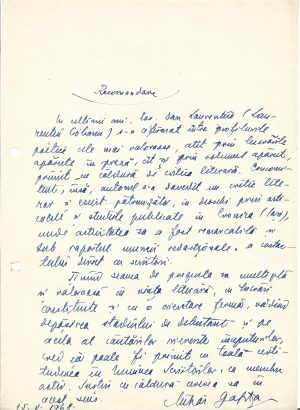 Recomandare
In ultimii ani, tov. Dan Laurentiu (Lau-
rentiu Ciobanu) s-a afirmat intre profilurile
poetice cele mai valoroase, atit prin lucrările
apărute în presă, cît și prin volumul apărut,
primit cu căldură de critica literară. Concomi-
tent, însă, autorul s-a dovedit un critic lite-
rar și eseist pătrunzător, în deosebi prin arti-
colele și studiile publicate în Cronica (Iași),
unde activitatea sa a fost remarcabilă și
sub raportul muncii redacționale, a contac-
tului direct cu scriitori.
Ținînd seama de prezența sa multiplă
și valoroasă în viața literară, cu lucrări
și cu o orientare fermă, vădind
depășirea stadiului de debutant și pe
acela al căutărilor
cred că poate fi primit cu toată certi-
tudinea în Uniunea Scriitorilor, ca membru
activ. Susțin cu căldură cererea sa în
acest sens.
15.X.1968 Mihai Gafița